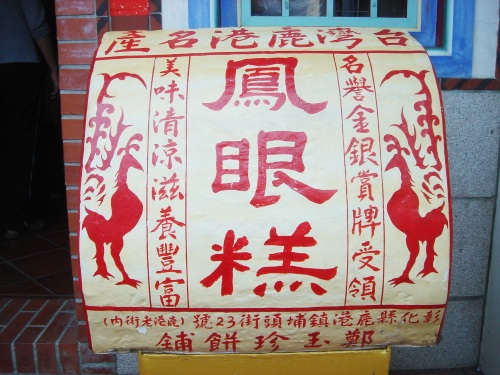 台灣鹿港名產
名譽金銀賞牌受領
鳳眼糕
美味清涼滋養豐富
彰化縣鹿港鎮埔頭街23號(鹿港老街內)
鄭玉珍餅鋪